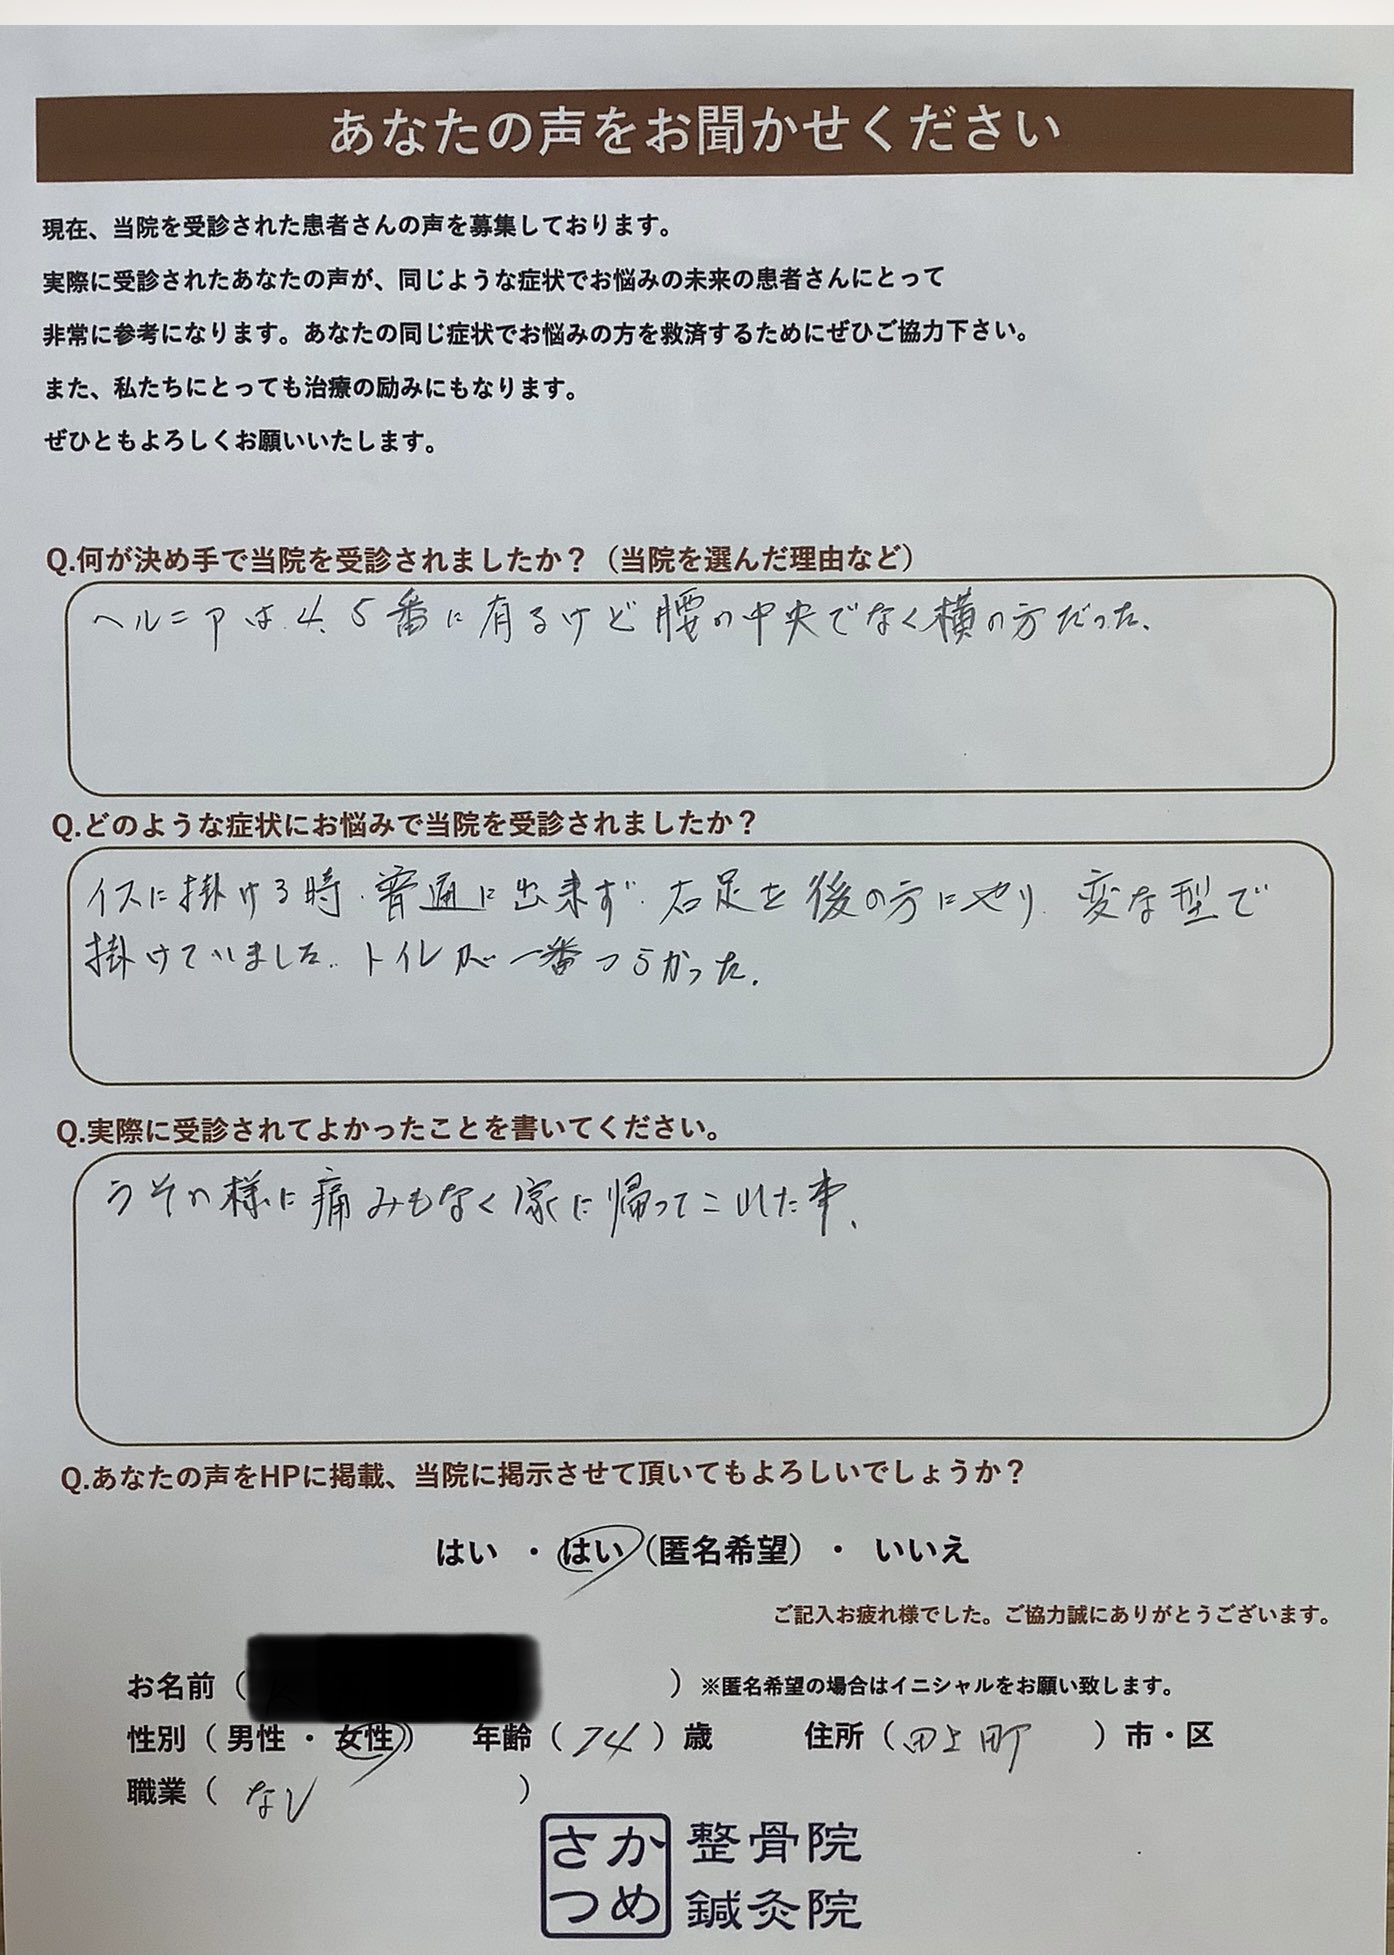 あなたの声をお聞かせください
現在、当院を受診された患者さんの声を募集しております。
実際に受診されたあなたの声が、同じような症状でお悩みの未来の患者さんにとって
非常に参考になります。あなたの同じ症状でお悩みの方を救済するためにぜひご協力下さい。
また、私たちにとっても治療の励みにもなります。
ぜひともよろしくお願いいたします。
Q.何が決め手で当院を受診されましたか？（当院を選んだ理由など）
ヘルニアは4、5番に有るけど腰の中央でなく横の方だった、
Q.どのような症状にお悩みで当院を受診されましたか？
イスに掛ける時、普通に出来ず、右足を後の方にやり、変な型で
掛けていました。トイレが一番つらかった。
Q.実際に受診されてよかったことを書いてください。
うその様に痛みもなく家に帰ってこれた事、
Q.あなたの声をHPに掲載、当院に掲示させて頂いてもよろしいでしょうか？
はい ・ はい（匿名希望） ・ いいえ
ご記入お疲れ様でした。ご協力誠にありがとうございます。
お名前（ ）※匿名希望の場合はイニシャルをお願い致します。
性別（男性・女性） 年齢（74）歳 住所（田上町 ）市・区
職業（なし ）
さか 整骨院
つめ 鍼灸院